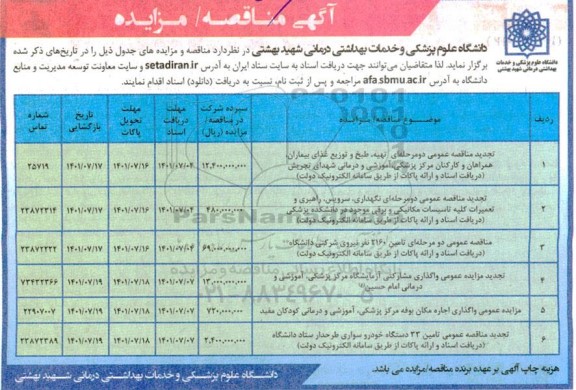 آگهی مناقصه/ مزایده
دانشگاه علوم پزشکی و خدمات
بهداشتی درمانی شهید بهشتی
دانشگاه علوم پزشکی و خدمات بهداشتی درمانی شهید بهشتی در نظردارد مناقصه و مزایده های جدول ذیل را در تاریخ‌های ذکر شده
برگزار نماید. لذا متقاضیان می‌توانند جهت دریافت اسناد به سایت ستاد ایران به آدرس setadiran.ir و سایت معاونت توسعه مدیریت و منابع
دانشگاه به آدرس afa.sbmu.ac.ir مراجعه و پس از ثبت نام، نسبت به دریافت (دانلود) اسناد اقدام نمایند.
ردیف موضوع مناقصه/ مزایده سپرده شرکت در مناقصه/ مزایده (ریال) مهلت دریافت اسناد مهلت تحویل پاکات تاریخ بازگشایی شماره تماس
۱ تجدید مناقصه عمومی دومرحله‌ای تهیه، طبخ و توزیع غذای بیماران، همراهان و کارکنان مرکز پزشکی آموزشی و درمانی شهدای تجریش (دریافت اسناد و ارائه پاکات از طریق سامانه الکترونیک دولت) ۱۲,۴۰۰,۰۰۰,۰۰۰ ۱۴۰۱/۰۷/۰۴ ۱۴۰۱/۰۷/۱۶ ۱۴۰۱/۰۷/۱۷ ۲۵۷۱۹
۲ تجدید مناقصه عمومی دومرحله‌ای نگهداری، سرویس، راهبری و تعمیرات کلیه تاسیسات مکانیکی و برقی موجود در دانشکده پزشکی (دریافت اسناد و ارائه پاکات از طریق سامانه الکترونیک دولت) ۴۸۰,۰۰۰,۰۰۰ ۱۴۰۱/۰۷/۰۴ ۱۴۰۱/۰۷/۱۶ ۱۴۰۱/۰۷/۱۷ ۲۳۸۷۲۳۱۴
۳ مناقصه عمومی دو مرحله‌ای تامین ۳۱۶۰ نفر نیروی شرکتی دانشگاه (دریافت اسناد و ارائه پاکات از طریق سامانه الکترونیک دولت) ۶۹,۰۰۰,۰۰۰,۰۰۰ ۱۴۰۱/۰۷/۰۴ ۱۴۰۱/۰۷/۱۶ ۱۴۰۱/۰۷/۱۷ ۲۳۸۷۲۴۲۲
۴ تجدید مزایده عمومی واگذاری مشارکتی آزمایشگاه مرکز پزشکی، آموزشی درمانی امام حسین(ع) ۱۳,۰۰۰,۰۰۰,۰۰۰ ۱۴۰۱/۰۷/۰۷ ۱۴۰۱/۰۷/۱۸ ۱۴۰۱/۰۷/۱۹ ۷۳۴۳۲۳۶۶
۵ مزایده عمومی واگذاری اجاره مکان بوفه مرکز پزشکی، آموزشی و درمانی کودکان مفید ۷۲۰,۰۰۰,۰۰۰ ۱۴۰۱/۰۷/۰۷ ۱۴۰۱/۰۷/۱۸ ۱۴۰۱/۰۷/۱۹ ۲۲۹۰۷۰۰۷
۶ تجدید مناقصه عمومی تامین ۳۳ دستگاه خودرو سواری طرحدار ستاد دانشگاه (دریافت اسناد و ارائه پاکات از طریق سامانه الکترونیک دولت) ۲,۴۰۰,۰۰۰,۰۰۰ ۱۴۰۱/۰۷/۰۷ ۱۴۰۱/۰۷/۱۸ ۱۴۰۱/۰۷/۱۹ ۲۳۸۷۲۳۸۹
هزینه چاپ آگهی بر عهده برنده مناقصه/مزایده می باشد.
دانشگاه علوم پزشکی و خدمات بهداشتی درمانی شهید بهشتی